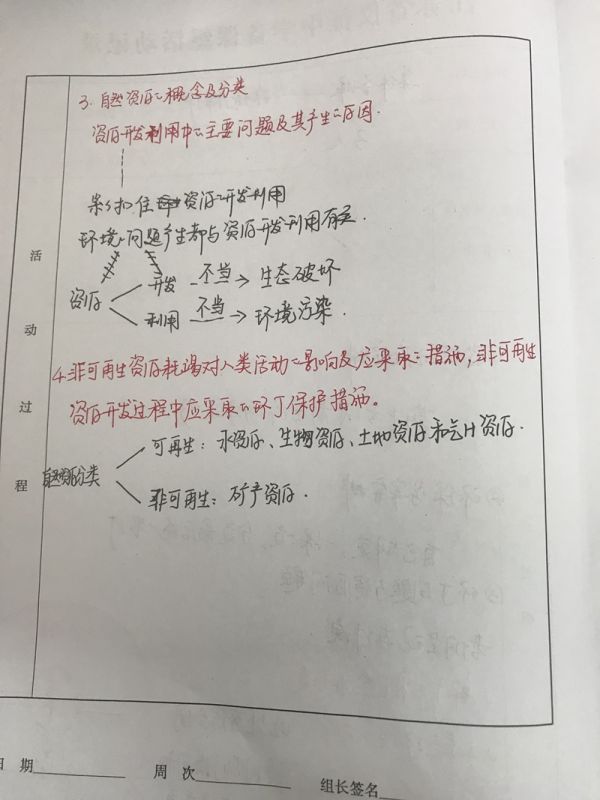 3. 自然资源的概念及分类
资源开发利用中的主要问题及其产生的原因.
紧扣住资源的开发利用
环境问题产生都与资源开发利用有关.
资源
开发 不当→ 生态破坏
利用 不当→ 环境污染.
4.非可再生资源耗竭对人类活动的影响及应采取的措施,非可再生
资源开发过程中应采取的环丁保护措施。
自然资源分类
可再生:水资源、生物资源、土地资源和气口资源.
非可再生:矿产资源.
活动过程
日 期
周 次
组长签名